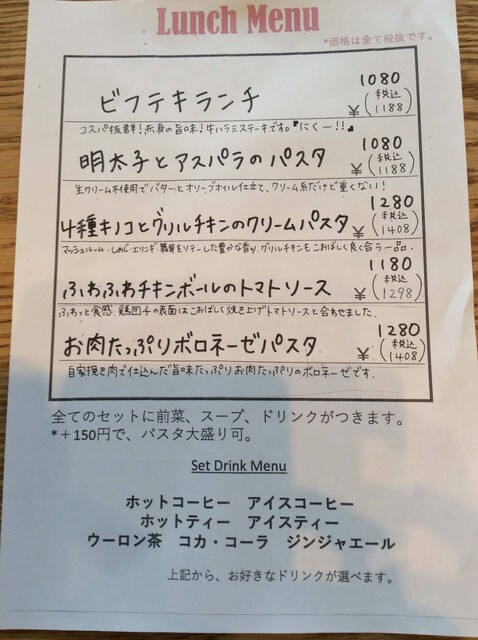 Lunch Menu
*価格は全て税抜です。
ビフテキランチ 1080 ¥(税込1188)
コスパ抜群!赤身の旨味!牛ハラミステーキです。『にくー!!』
明太子とアスパラのパスタ 1080 ¥(税込1188)
生クリーム不使用でバターとオリーブオイル仕立て、クリーム系だけど重くない!
4種キノコとグリルチキンのクリームパスタ 1280 ¥(税込1408)
マッシュルーム・しめじ・エリンギ・舞茸をソテーした豊かな香り、グリルチキンもこおばしく良く合う一品.
ふわふわチキンボールのトマトソース 1180 ¥(税込1298)
ふわっと食感、鶏団子の表面はこおばしく焼き上げトマトソースと合わせました、
お肉たっぷりボロネーゼパスタ 1280 ¥(税込1408)
自家挽き肉で仕込んだ旨味たっぷりお肉たっぷりのボロネーゼです.
全てのセットに前菜、スープ、ドリンクがつきます。
*+150円で、パスタ大盛り可。
Set Drink Menu
ホットコーヒー アイスコーヒー
ホットティー アイスティー
ウーロン茶 コカ・コーラ ジンジャエール
上記から、お好きなドリンクが選べます。